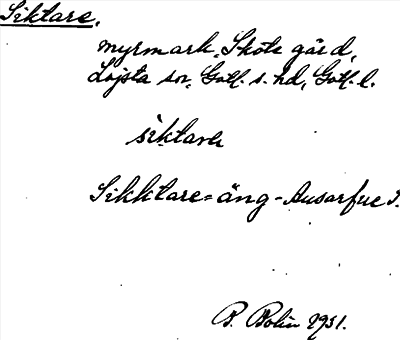 Siktare.
myrmark, Skote gård,
Lojsta sn, Gotl. s. hd, Gotl. l.
siktarę
Sikktare=äng - Ausarfve S.
B. Bolin 1931.